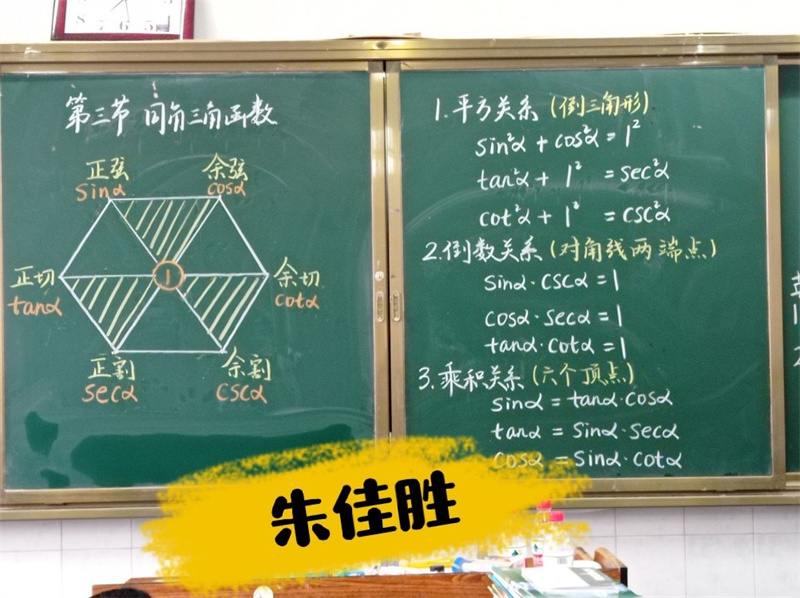 第三节 同角三角函数
正弦
sinα
余弦
cosα
正切
tanα
1
余切
cotα
正割
secα
余割
cscα
1.平方关系(倒三角形)
sin²α + cos²α = 1²
tan²α + 1² = sec²α
cot²α + 1² = csc²α
2.倒数关系(对角线两端点)
sinα·cscα = 1
cosα·secα = 1
tanα·cotα = 1
3.乘积关系(六个顶点)
sinα = tanα·cosα
tanα = sinα·secα
cosα = sinα·cotα
朱佳胜